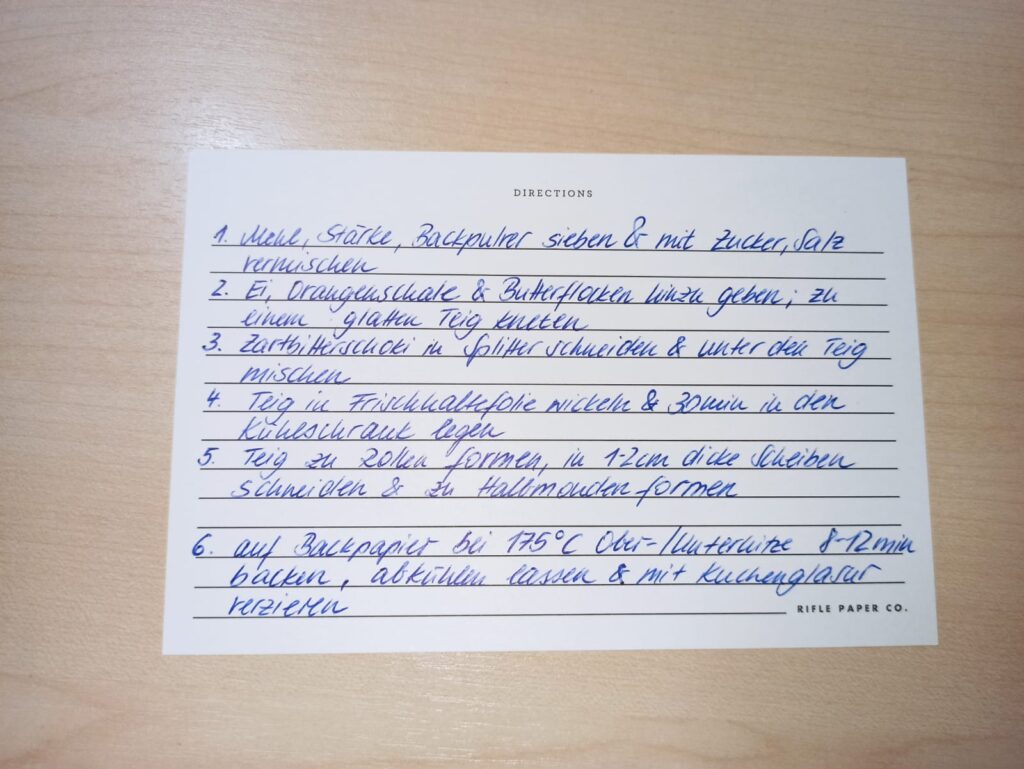 DIRECTIONS
1. Mehl, Stärke, Backpulver sieben & mit Zucker, Salz
vermischen
2. Ei, Orangenschale & Butterflocken hinzu geben; zu
einem glatten Teig kneten
3. Zartbitterschoki in Splitter schneiden & unter den Teig
mischen
4. Teig in Frischhaltefolie wickeln & 30min in den
Kühlschrank legen
5. Teig zu Rollen formen, in 1-2cm dicke Scheiben
schneiden & zu Halbmonden formen
6. auf Backpapier bei 175°C Ober-/Unterhitze 8-12min
backen, abkühlen lassen & mit Kuchenglasur
verzieren
RIFLE PAPER CO.